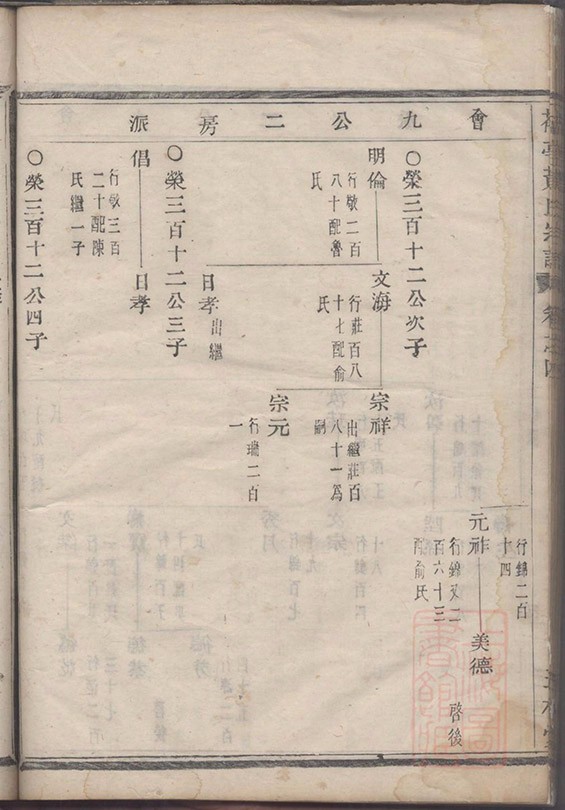 會九公二房派
行錦二百
十四
元祚
行錦又二
百六十三
配俞氏
美德
啓後
○榮三百十二公次子
明倫
行敬二百
八十配魯
氏
文海
行莊百八
十七配俞
氏
宗祥
出繼莊百
八十一爲
嗣
宗元
行瑞二百
一
日孝
出繼
○榮三百十二公三子
倡
行敬三百
二十配陳
氏繼一子
日孝
○榮三百十二公四子